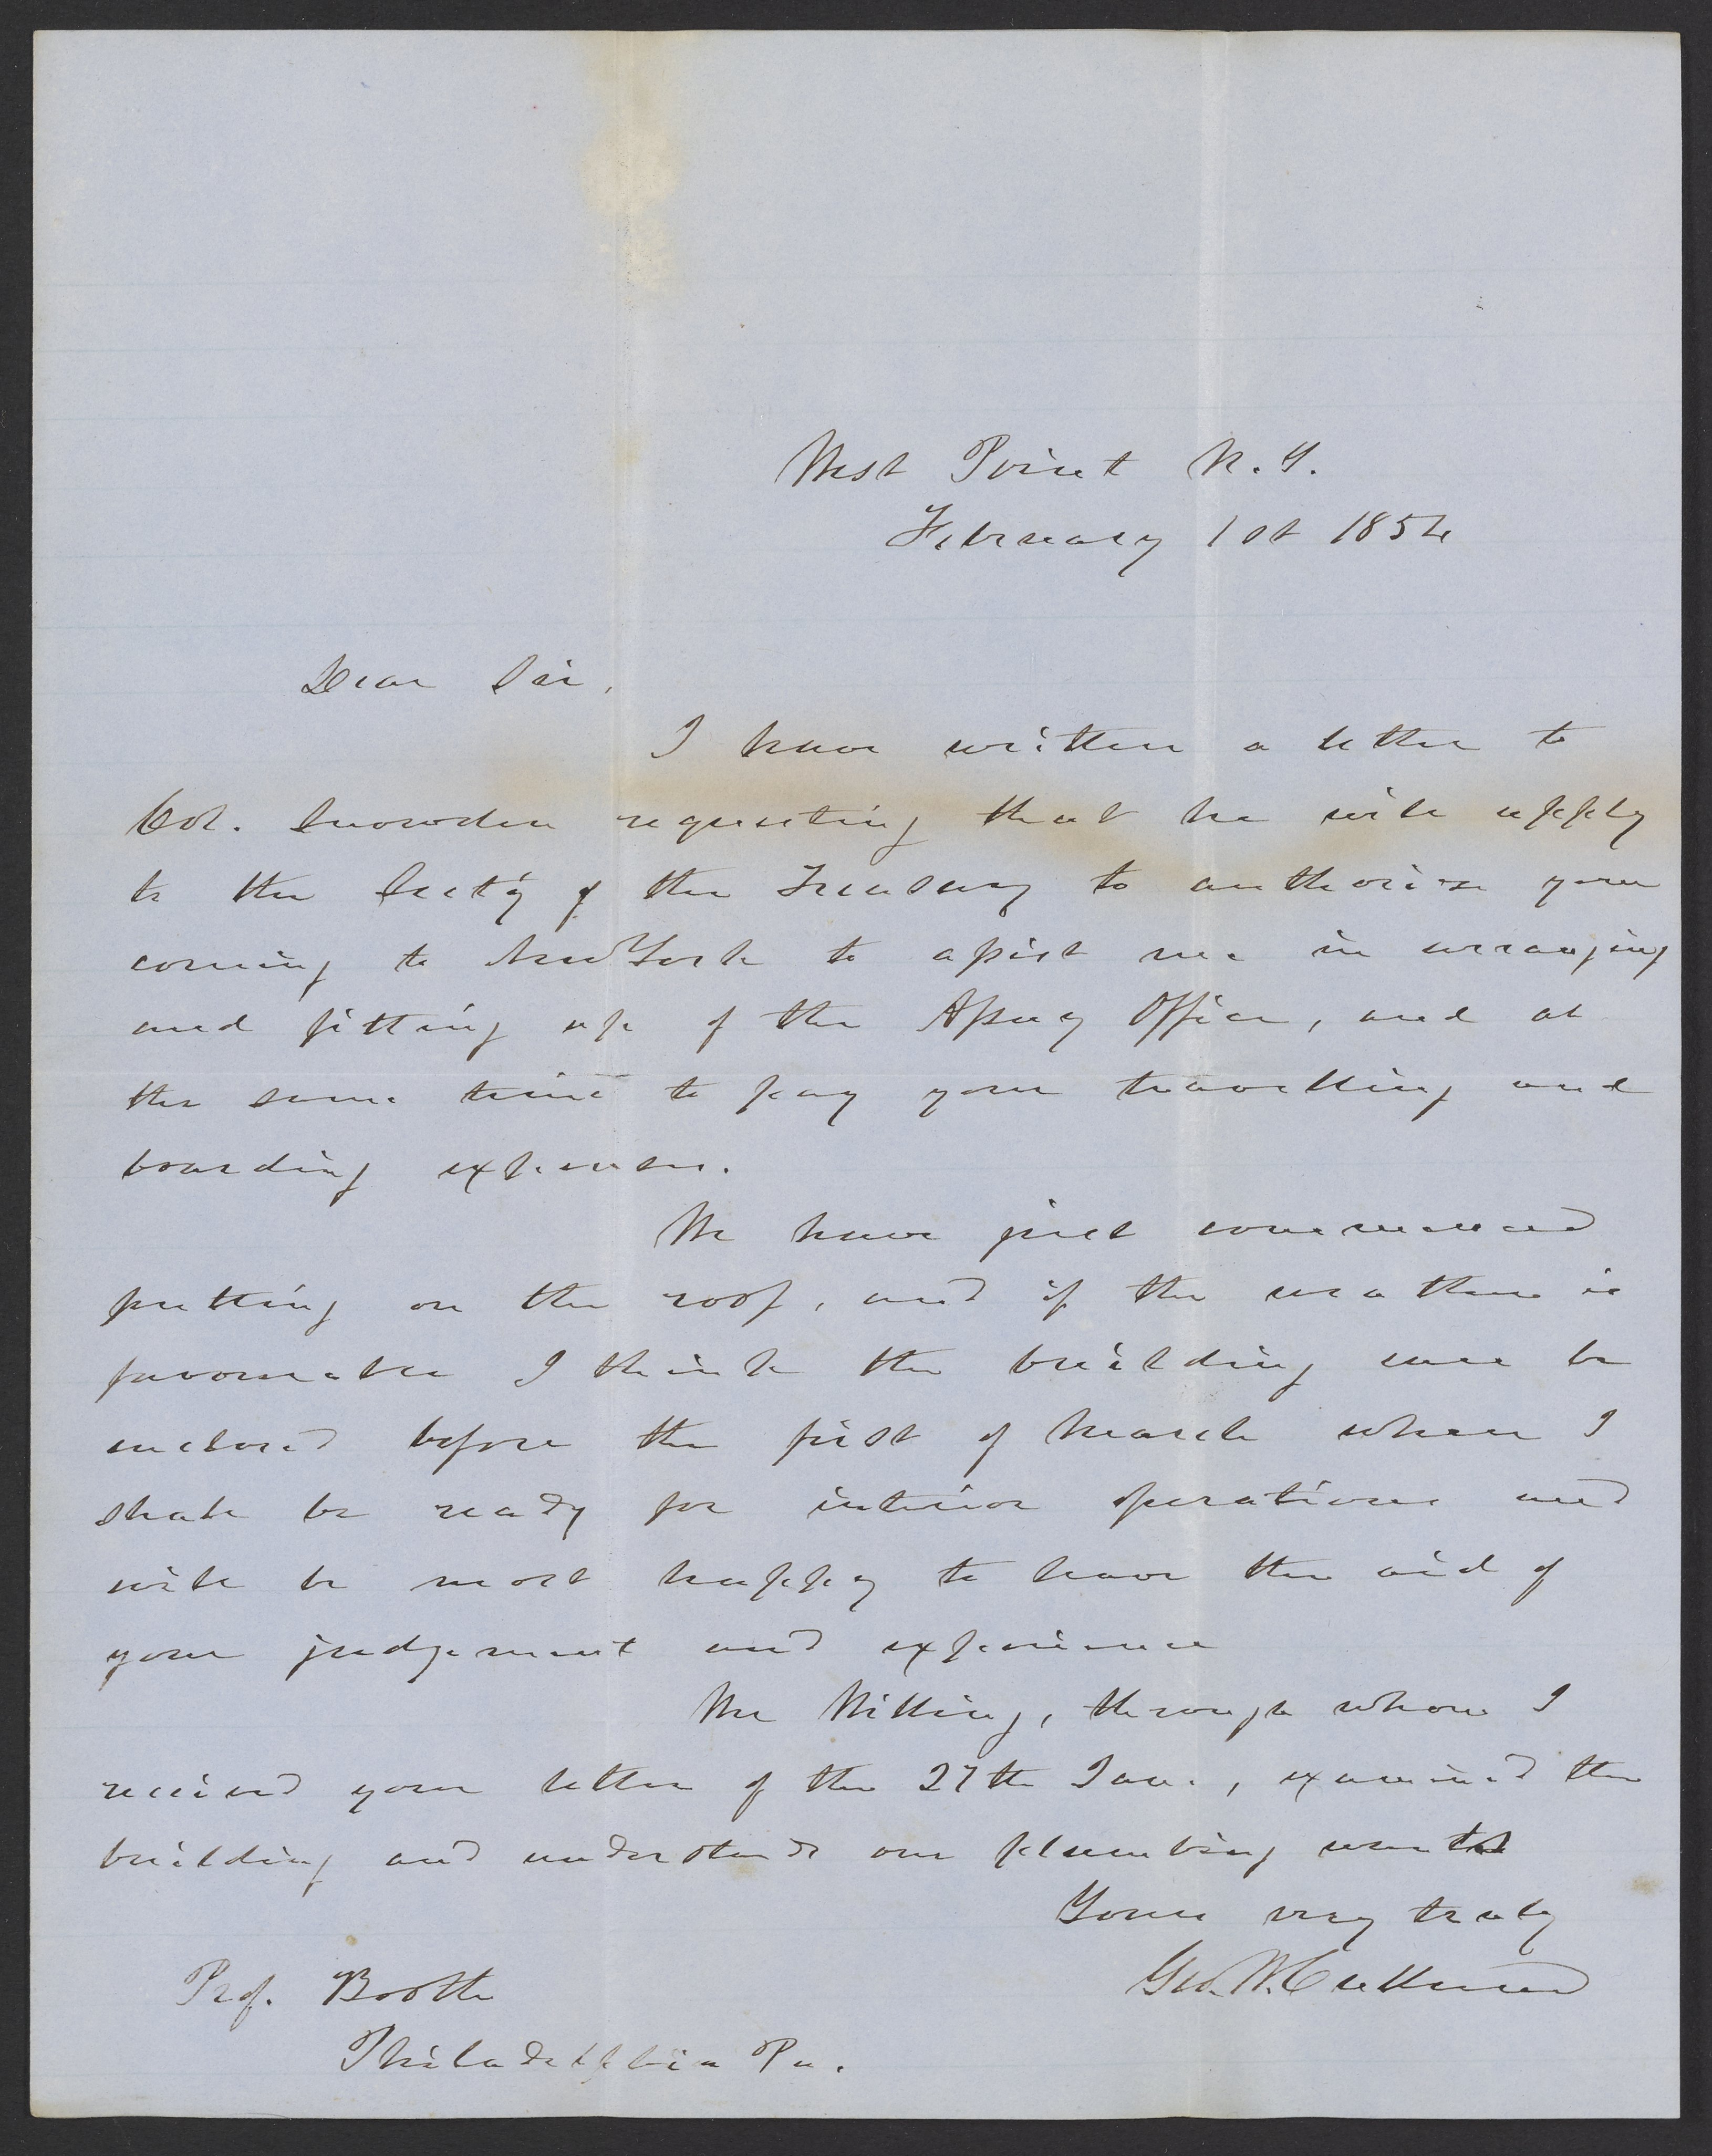 West Point N.Y.
February 1st 1854
Dear Sir,
I have written a letter to
Col. Snowden requesting that he will apply
to the Secty of the Treasury to authorize your
coming to New York to assist me in arranging
and fitting up of the Assay Office, and at
the same time to pay your travelling and
boarding expenses.
We have just commenced
putting on the roof, and if the weather is
favourable I think the building will be
enclosed before the first of March when I
shall be ready for interior operations and
will be most happy to have the aid of
your judgement and experience
Mr , through whom I
received your letter of the 27th Jan., examined the
building and understands our plumbing wants
Yours very truly
Geo. W. Cullum
Prof. Booth
Philadelphia Pa.